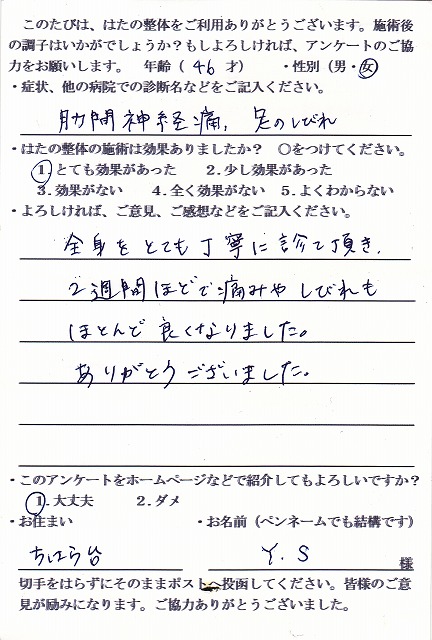 このたびは、はたの整体をご利用ありがとうございます。施術後
の調子はいかがでしょうか？もしよろしければ、アンケートのご協
力をお願いします。　年齢（ 46 才）　・性別（男・女）
・症状、他の病院での診断名などをご記入ください。
肋間神経痛、足のしびれ
・はたの整体の施術は効果ありましたか？　○をつけてください。
1.とても効果があった　2.少し効果があった
3.効果がない　4.全く効果がない　5.よくわからない
・よろしければ、ご意見、ご感想などをご記入ください。
全身をとても丁寧に診て頂き、
2週間ほどで痛みやしびれも
ほとんど良くなりました。
ありがとうございました。
・このアンケートをホームページなどで紹介してもよろしいですか？
1.大丈夫　2.ダメ
・お住まい　・お名前（ペンネームでも結構です）
ちはら台　Y.S　様
切手をはらずにそのままポストへ投函してください。皆様のご意
見が励みになります。ご協力ありがとうございました。